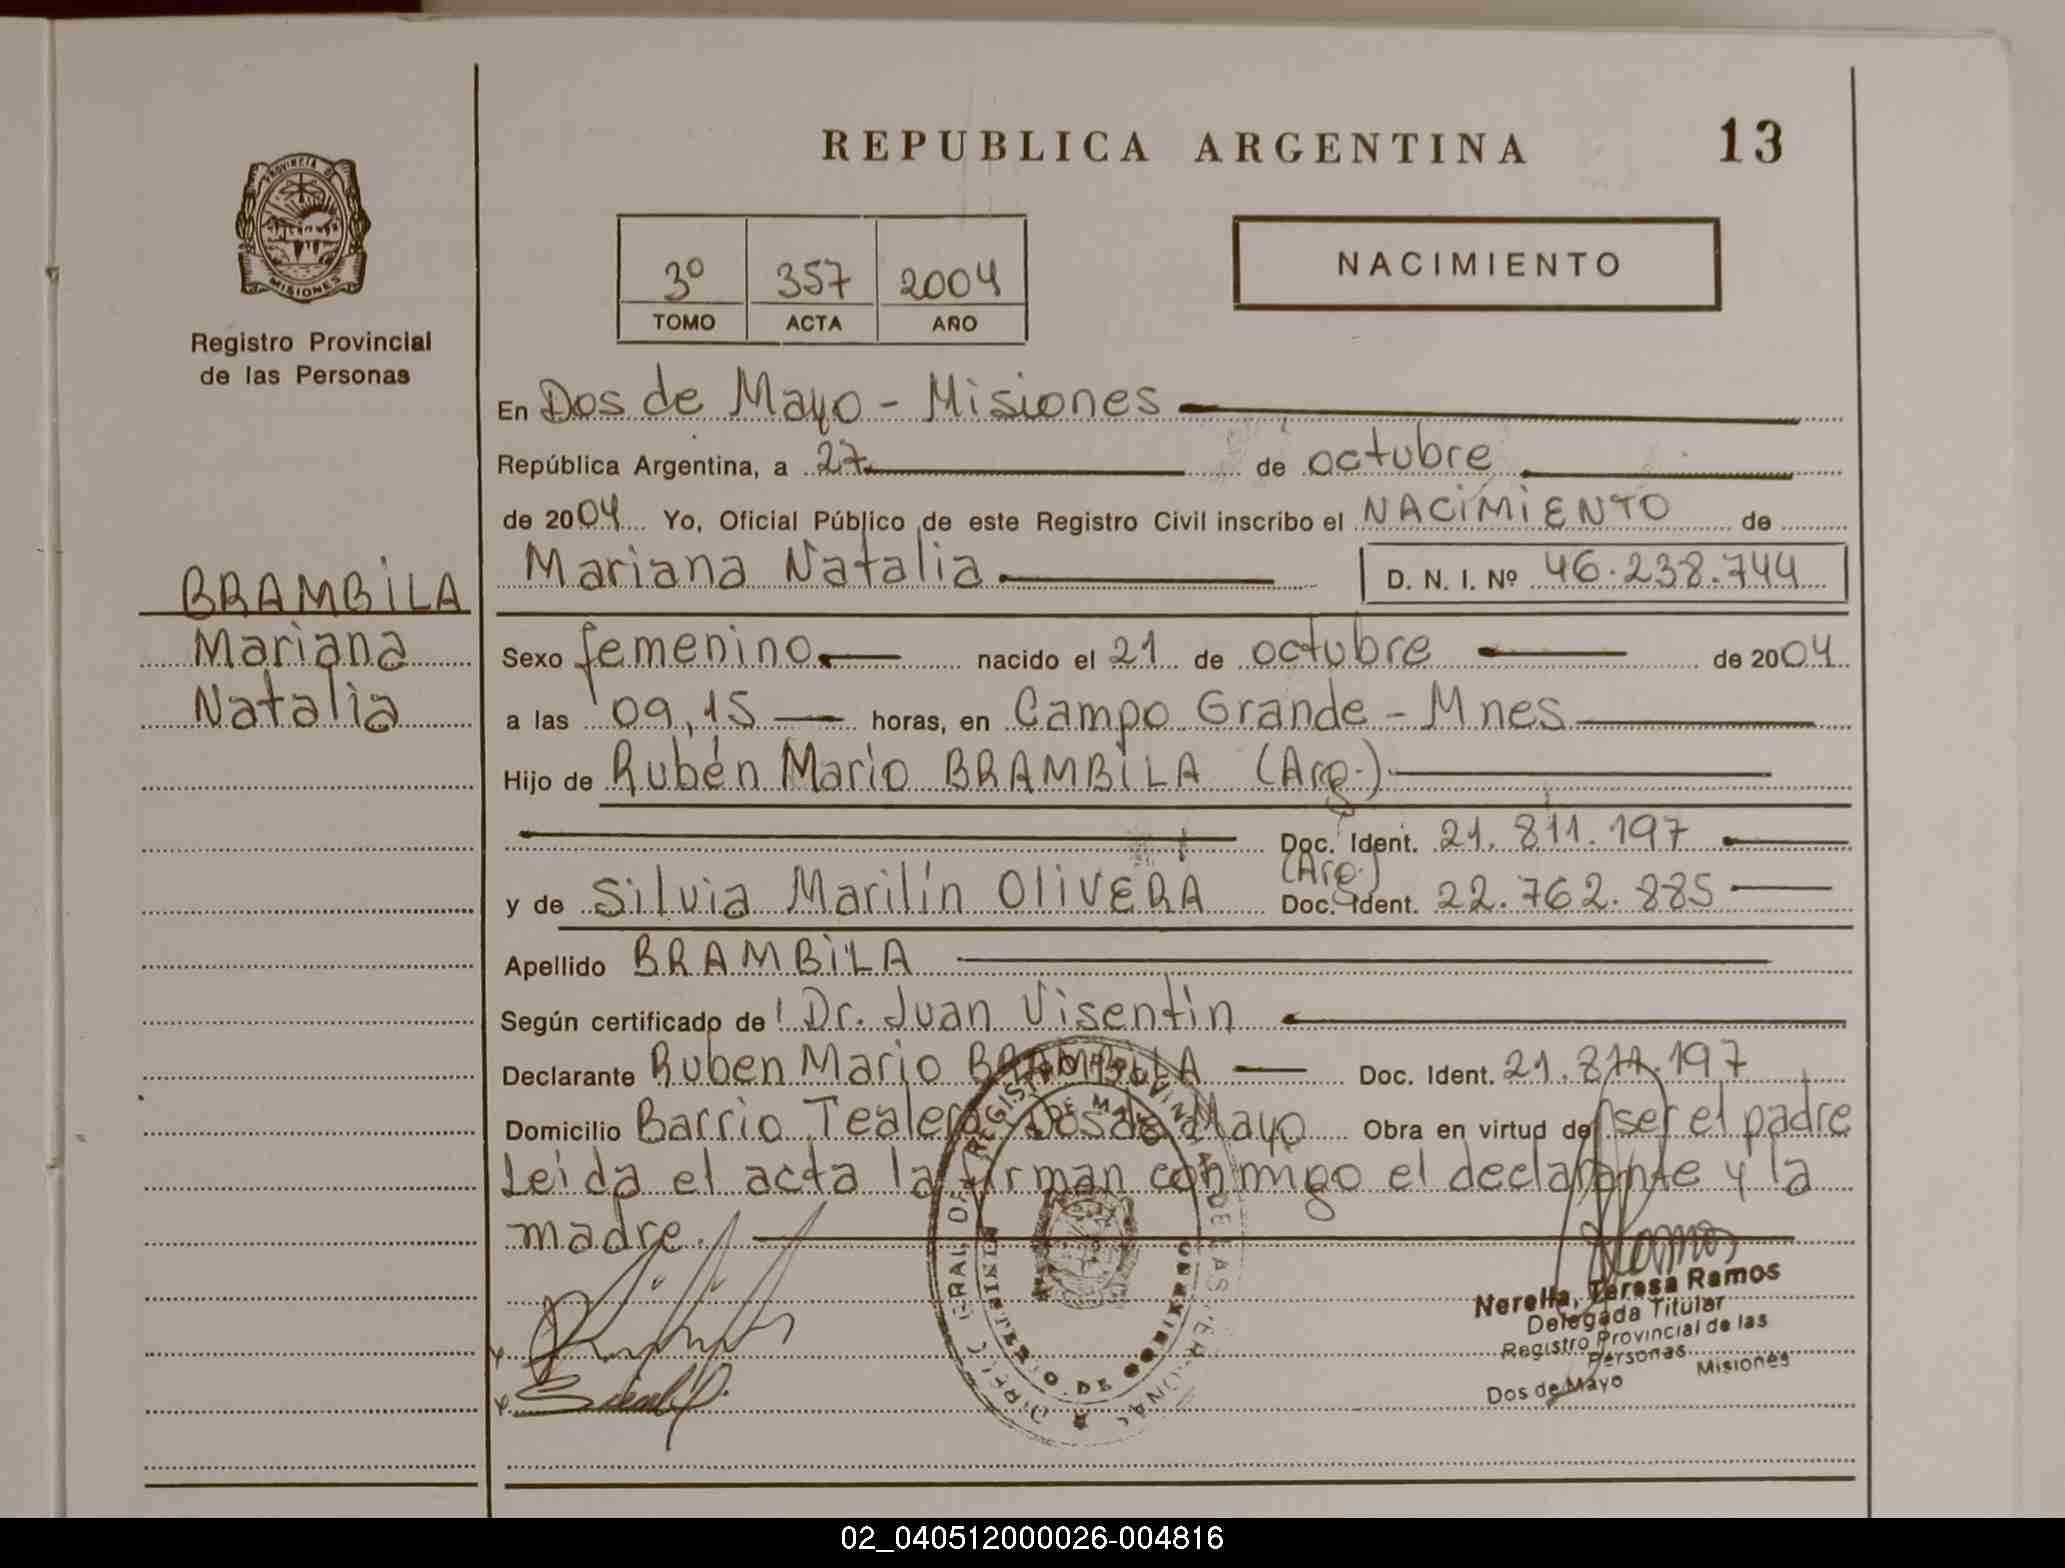 REPUBLICA ARGENTINA 13
PROVINCIA DE
MISIONES
Registro Provincial
de las Personas
3º 357 2004
TOMO ACTA AÑO
NACIMIENTO
En Dos de Mayo - Misiones
República Argentina, a 27 de octubre
de 2004 Yo, Oficial Público de este Registro Civil inscribo el NACIMIENTO de
Mariana Natalia D. N. I. Nº 46.238.744
BRAMBILA
Mariana
Natalia
Sexo femenino nacido el 21 de octubre de 2004
a las 09,15 horas, en Campo Grande - Mnes
Hijo de Rubén Mario BRAMBILA (Arg.)
Doc. Ident. 21.811.197
(Arg.)
y de Silvia Marilín OLIVERA Doc. Ident. 22.762.885
Apellido BRAMBILA
Según certificado de Dr. Juan Visentín
Declarante Ruben Mario BRAMBILA Doc. Ident. 21.811.197
Domicilio Barrio Tealero Dos de Mayo Obra en virtud de ser el padre
Leida el acta la firman conmigo el declarante y la
madre.
Nerella, Teresa Ramos
Delegada Titular
Registro Provincial de las
Personas
Dos de Mayo Misiones
02_040512000026-004816